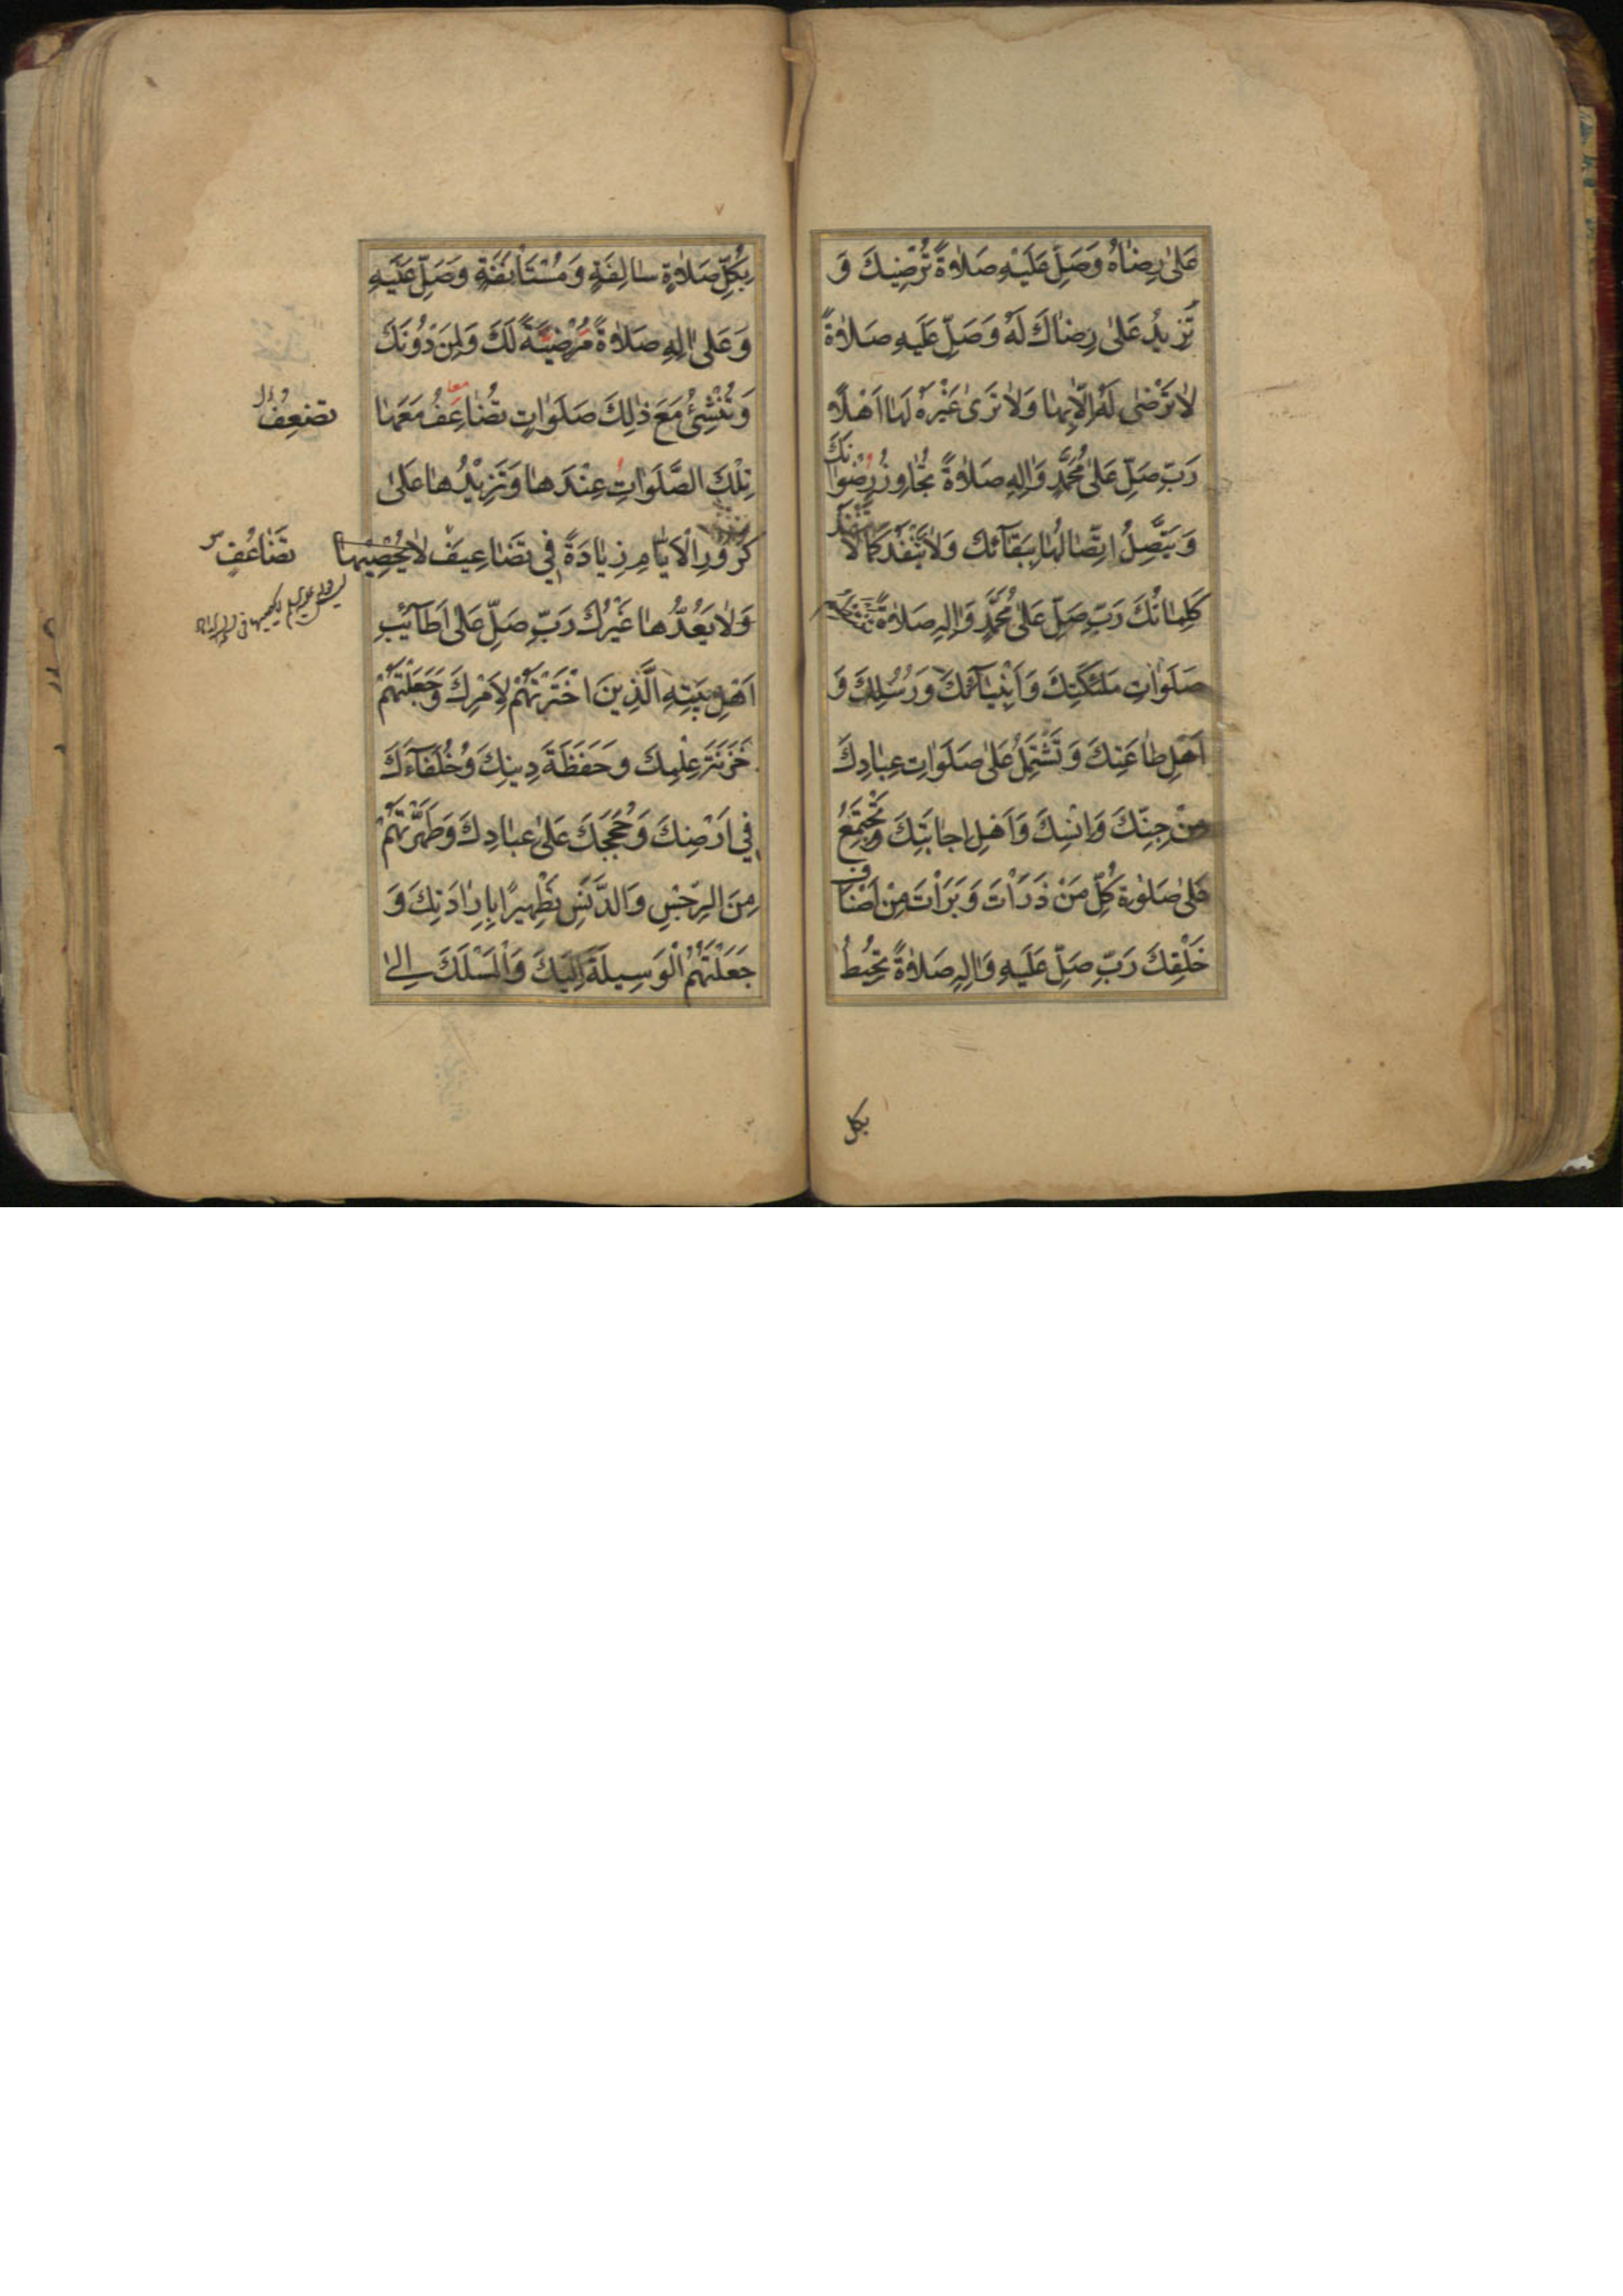 عَلىٰ رِضٰاهُ وَصَلِّ عَلَيْهِ صَلاٰوةً تُرْضِيكَ وَ
تَزِيدُ عَلىٰ رِضٰاكَ لَهُ وَصَلِّ عَلَيهِ صَلاٰوةً
لاٰ تَرْضىٰ لَهُ اِلاّٰ بِهٰا وَلاٰ تَرىٰ غَيْرَهُ لَهٰا اَهْلاً
رَبِّ صَلِّ عَلىٰ مُحَمَّدٍ وَاٰلِهِ صَلاٰوةً تُجٰاوِزُ رِضْوٰانَكَ
وَيَتَّصِلُ اتِّصٰالُهٰا بِبَقٰآئِكَ وَلاٰ يَنْفَدُ كَمٰا لاٰ تَنْفَدُ
كَلِمٰاتُكَ رَبِّ صَلِّ عَلىٰ مُحَمَّدٍ وَاٰلِهِ صَلاٰوةً تَنْتَظِمُ
صَلَوٰاتِ مَلٰئِكَتِكَ وَاَنْبِيٰآئِكَ وَرُسُلِكَ وَ
اَهْلِ طٰاعَتِكَ وَتَشْتَمِلُ عَلىٰ صَلَوٰاتِ عِبٰادِكَ
مِنْ جِنِّكَ وَاِنْسِكَ وَاَهْلِ اِجٰابَتِكَ وَتَجْتَمِعُ
عَلىٰ صَلٰوةِ كُلِّ مَنْ ذَرَاْتَ وَبَرَاْتَ مِنْ اَصْنٰافِ
خَلْقِكَ رَبِّ صَلِّ عَلَيهِ وَاٰلِهِ صَلاٰوةً تُحِيطُ
بكل
٧
بِكُلِّ صَلاٰوةٍ سٰالِفَةٍ وَمُسْتَاْنَفَةٍ وَصَلِّ عَلَيهِ
وَعَلىٰ اٰلِهِ صَلاٰوةً مَرْضِيَّةً لَكَ وَلِمَنْ دُونَكَ
وَتُنْشِئُ مَعَ ذٰلِكَ صَلَوٰاتٍ تُضٰاعِفُ مَعَهٰا
معا
تضعِفُ
تِلْكَ الصَّلَوٰاتِ عِنْدَهٰا وَتَزِيْدُهٰا عَلىٰ
كُرُورِ الْاَيّٰامِ زِيٰادَةً فِي تَضٰاعِيفَ لاٰ يُحْصِيْهٰا
تَضٰاعُفٍ
وَلاٰ يَعُدُّهٰا غَيْرُكَ رَبِّ صَلِّ عَلىٰ اَطٰآئِبِ
اَهْلِ بَيْتِهِ الَّذِينَ اخْتَرْتَهُمْ لِاَمْرِكَ وَجَعَلْتَهُمْ
خَزَنَةَ عِلْمِكَ وَحَفَظَةَ دِينِكَ وَخُلَفٰآءَكَ
فِي اَرْضِكَ وَحُجَجَكَ عَلىٰ عِبٰادِكَ وَطَهَّرْتَهُمْ
مِنَ الرِّجْسِ وَالدَّنَسِ تَطْهِيرًا بِاِرٰادَتِكَ وَ
جَعَلْتَهُمُ الْوَسِيلَةَ اِلَيكَ وَالْمَسْلَكَ اِلىٰ